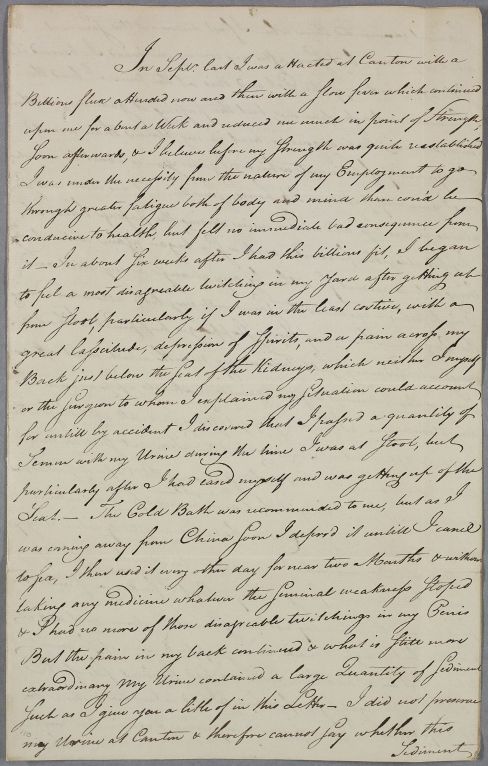 In Sept.r last I was attacted at Canton with a
Billious flux attended now and then with a slow fever which continued
upon me for about a Week and reduced me much in point of Strength
Soon afterwards, & I believe before my Strength was quite reestablished
I was under the necessity from the nature of my Employment to go
through greater fatigue both of body and mind than cou'd be
conducive to health, but felt no immediate bad consequence from
it — In about six weeks after I had this billious fit, I began
to feel a most disagreable twitching in my Yard after getting up
from Stool, particularly if I was in the least costive, with a
great lassitude, depression of Spirits, and a pain across my
Back just below the seat of the Kidneys, which neither I myself
or the Surgeon to whom I explained my situation could account
for untill by accident I discovered that I passed a quantity of
Semen with my Urine during the time I was at Stool, but
particularly after I had eased myself and was getting up of the
Seat. — The Cold Bath was recommended to me, but as I
was coming away from China soon I deferr'd it untill I came
to sea, I then used it every other day for near two Months & without
taking any medicine whatever the Seminal weakness stoped
& I had no more of those disagreable twitchings in my Penis
But the pain in my back continued & what is still more
extraordinary my Urine contained a large Quantity of Sediment
such as I give you a little of in this Letter — I did not preserve
my Urine at Canton & therefore cannot say whether this
Sediment